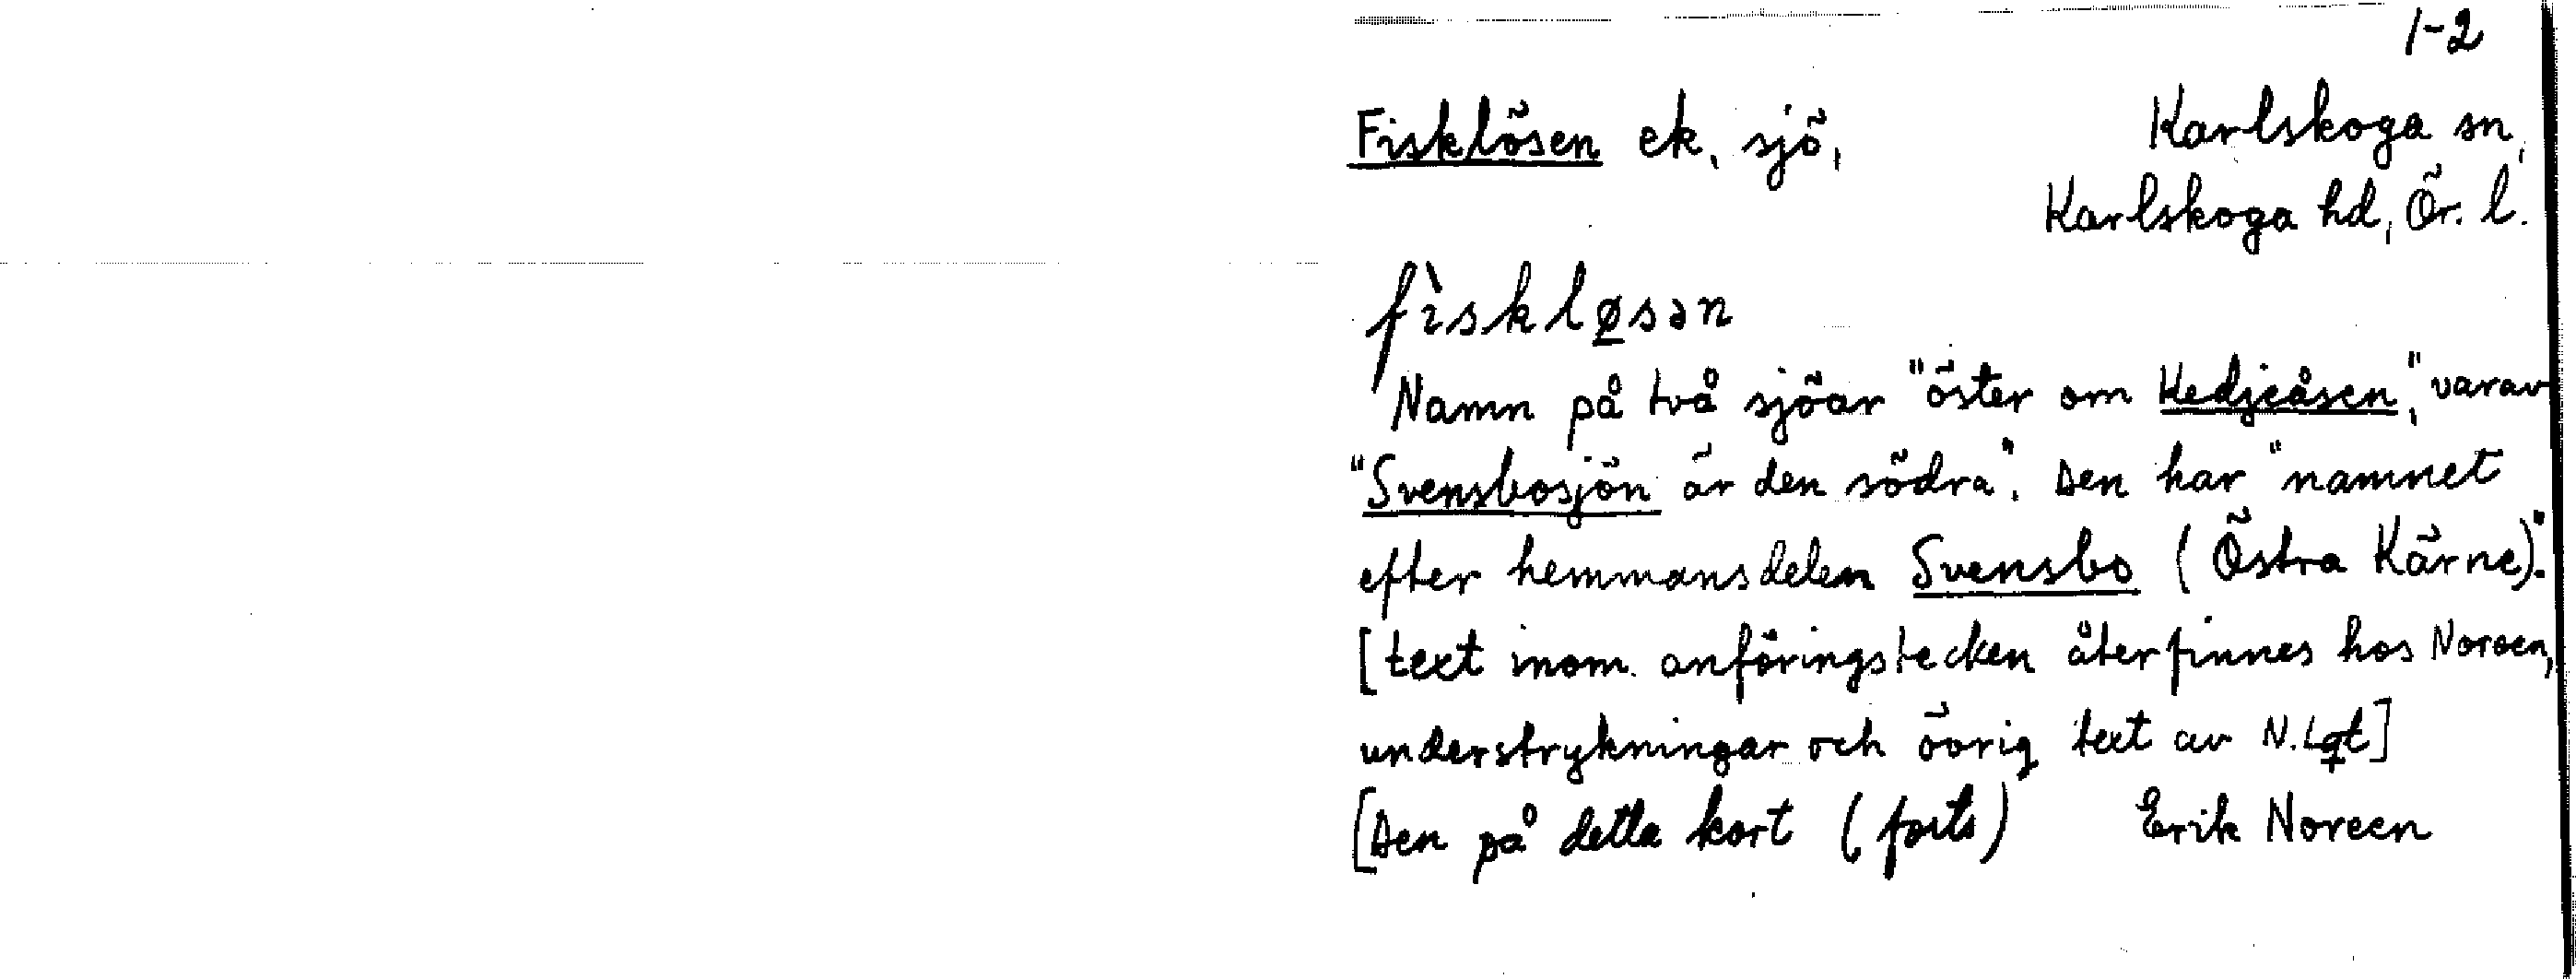 1-2
Fisklösen ek. sjö, Karlskoga sn,
Karlskoga hd, Ör. l.
fìskløsən
Namn på två sjöar "öster om Hedjeåsen", varav
"Svensbosjön är den södra". Den har "namnet
efter hemmansdelen Svensbo (Östra Kärne)."
[text inom anföringstecken återfinnes hos Noreen,
understrykningar och övrig text av N.Lgt]
[Den på detta kort (forts) Erik Noreen